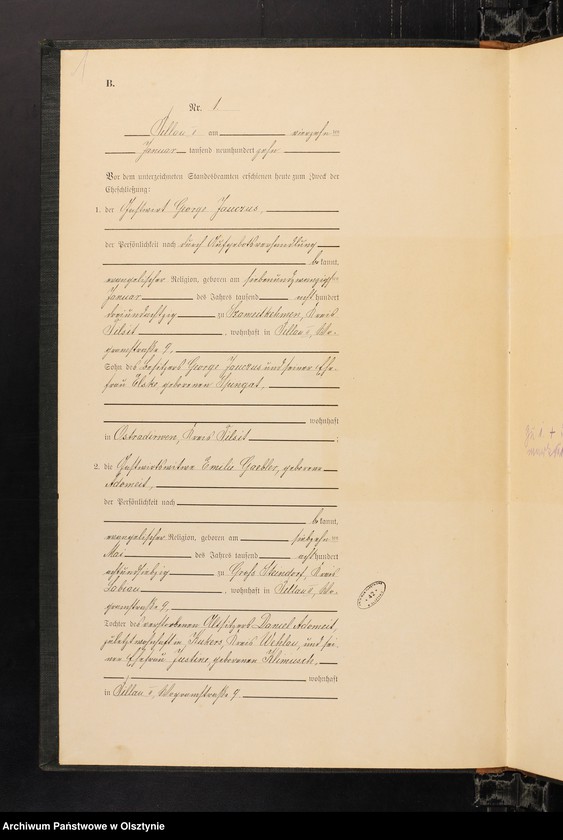 1
B.
Nr. 1
Pillau, am vierzehnten
Januar tausend neunhundert zehn
Vor dem unterzeichneten Standesbeamten erschienen heute zum Zweck der
Eheschließung:
1. der Gastwirt George Jauczus,
der Persönlichkeit nach durch Aufgebotsverhandlung
bekannt,
evangelischer Religion, geboren am siebenundzwanzigsten
Januar des Jahres tausend acht hundert
dreiundachtzig zu Szameitkehmen, Kreis
Tilsit, wohnhaft in Pillau
9,
Sohn des Besitzers George Jauczus und seiner Ehe-
frau Elske, geborenen
wohnhaft
in Kreis Tilsit;
2. die Gastwirtswitwe Emilie Gaebler, geborene
Adomeit,
der Persönlichkeit nach
bekannt,
evangelischer Religion, geboren am siebzehnten
Mai des Jahres tausend acht hundert
achtundsiebzig zu Groß Kreis
Labiau, wohnhaft in Pillau
9,
Tochter des verstorbenen Altsitzers Daniel Adomeit,
zuletzt wohnhaft in Kukers, Kreis Wehlau, und sei-
ner Ehefrau Justine, geborenen Klimusch,
wohnhaft
in Pillau 9
42
Archiwum Państwowe w Olsztynie